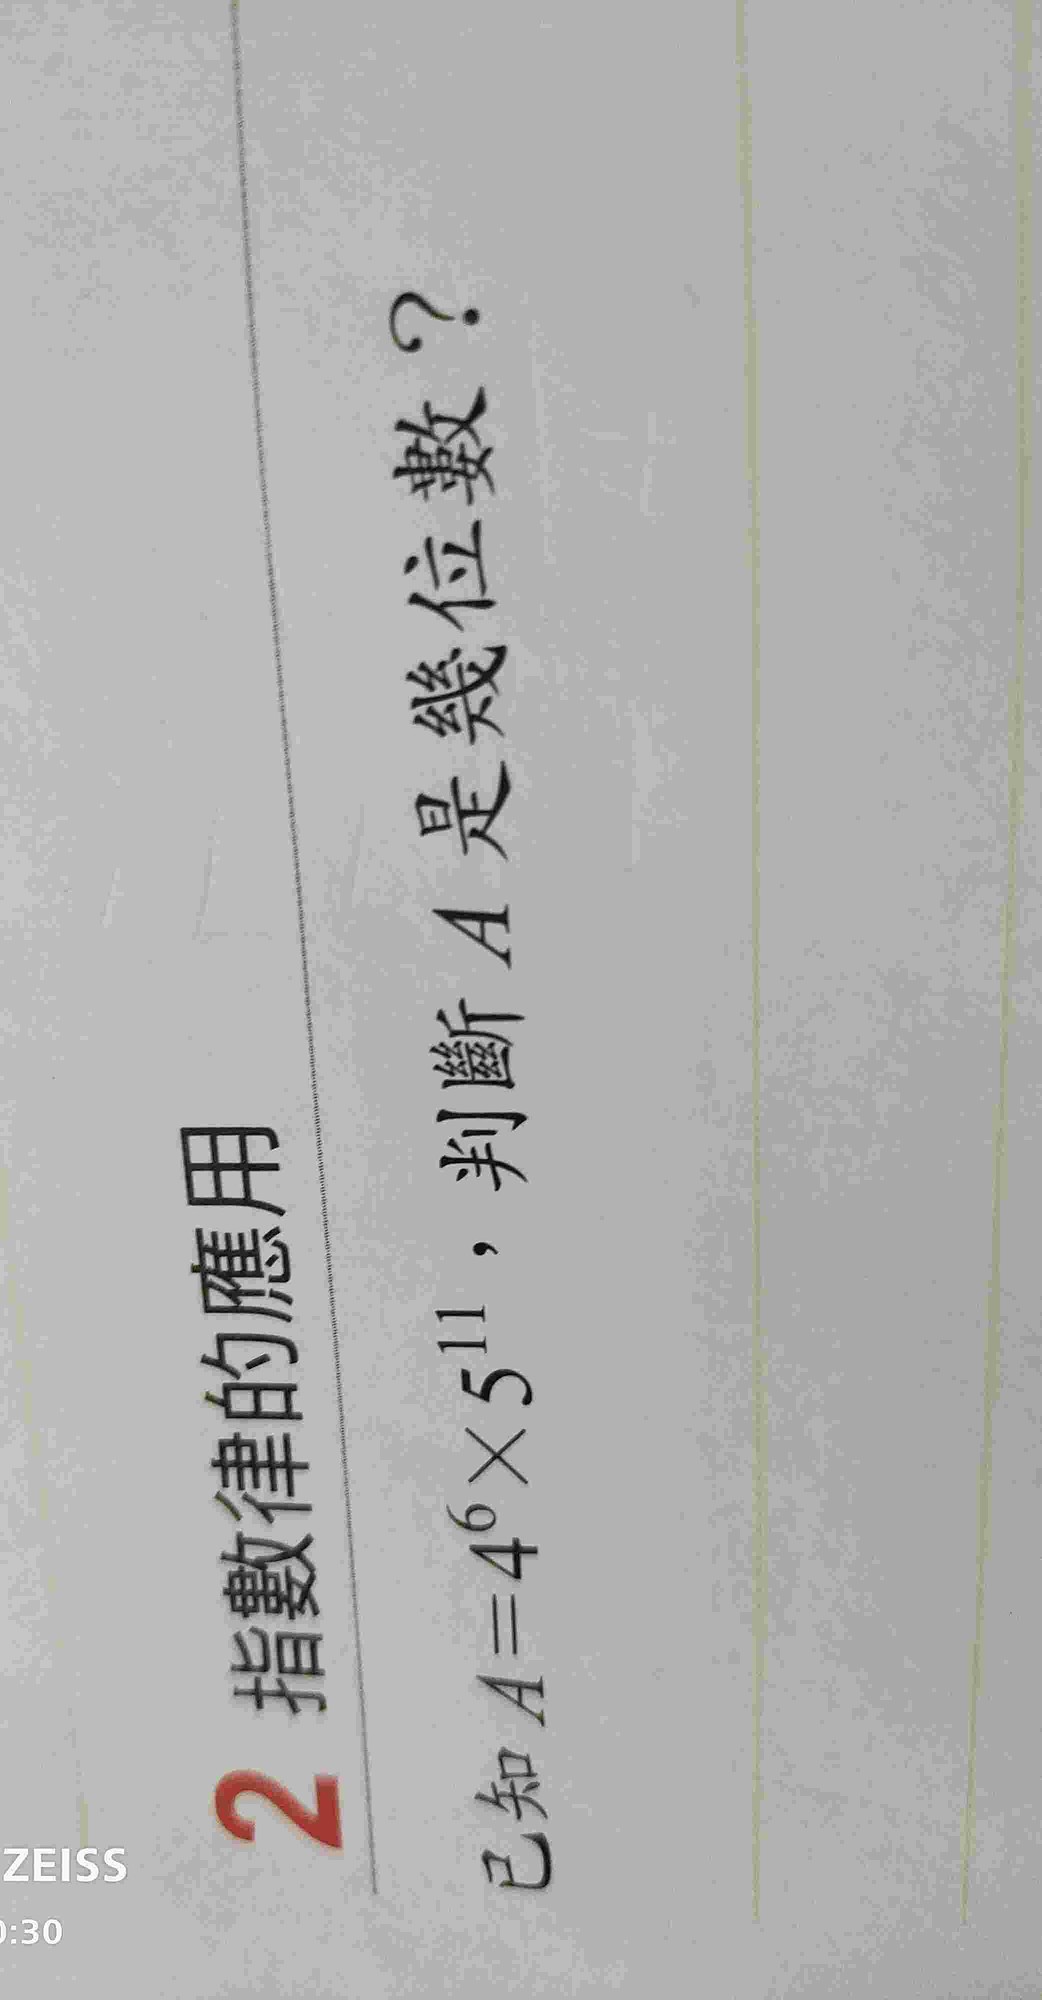 2 指數律的應用
已知 A=4⁶×5¹¹，判斷 A 是幾位數？
ZEISS
:30